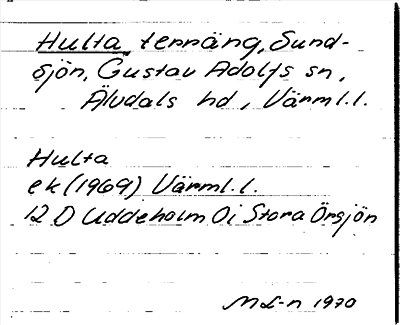 Hulta, terräng, Sund-
sjön, Gustav Adolfs sn,
Älvdals hd, Värml.l.
Hulta
ek (1969) Värml.l.
12 D Uddeholm Oi Stora Örsjön
ML-n 1970